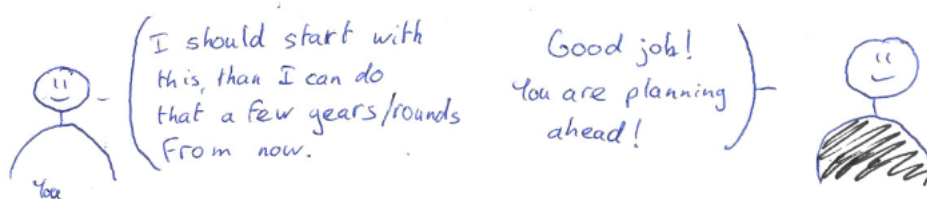 I should start with
this, than I can do
that a few years/rounds
From now.
Good job!
You are planning
ahead!
You